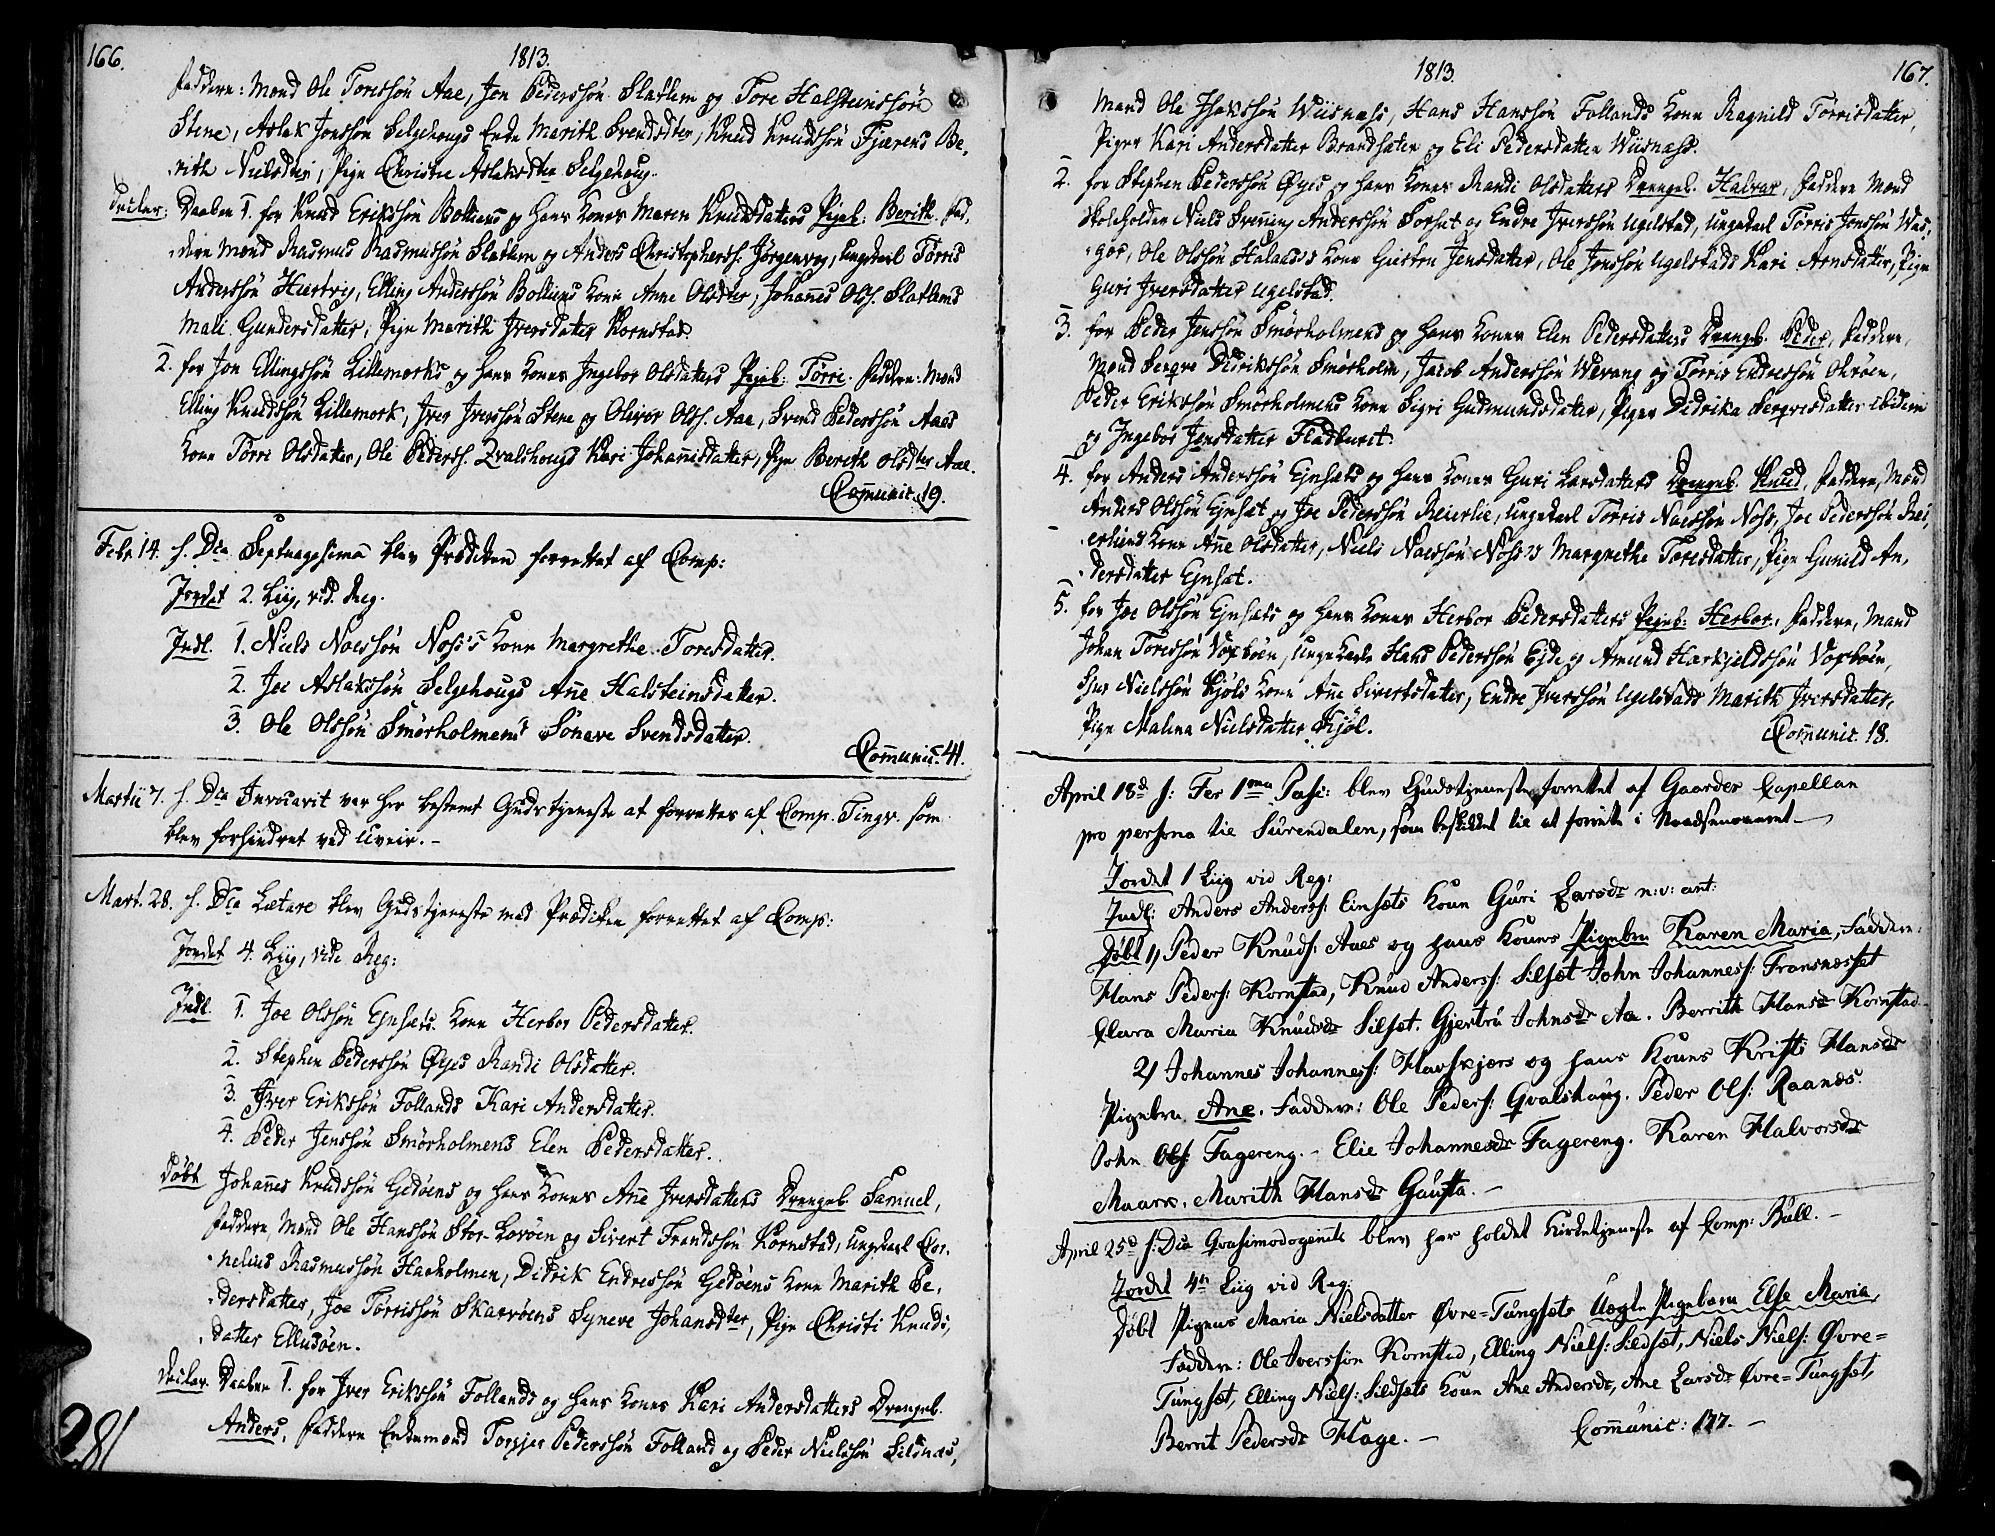 166.
1813.
Faddere: Mænd Ole Toressøn Aae, Jon Pederssøn Slatlem og Tore Halsteinssøn
Stene, Aslak Jonssøn Selgehougs Enke Marith Svendsdter, Knud Knudssøn Fjærens Be-
rith Nielsdter, Pige Christie Aslaksdter Selgehoug.
Declar: Daaben 1. for Knud Erikssøn Bolliens og hans Kones Maren Knudsdatters Pigeb: Berith. Fad-
dere Mænd Rasmus Rasmussøn Slatlem og Anders Christophers: Jørgenvog, Ungekarl Tørris
Anderssøn Hustvey, Elling Anderssøn Bolliens Kone Anne Olsdter, Johañes Ols. Slatlems
Mali Gundersdatter, Pige Marith Iversdatter Kornstad.
2. for Jon Ellingssøn Lillemorks og hans Kones Ingebor Olsdatters Pigeb: Torri. Faddere: Mænd
Elling Knudssøn Lillemork, Iver Iverssøn Stene og Oliver Ols. Aae, Svend Pederssøn Aaes
Kone Torri Olsdatter, Ole Peders. Qvalshougs Kari Johañisdatter, Pige Berith Olsdter Aae.
Com̄unic. 19.
Febr. 14. S. Dca Septuagesima blev Prædiken forrettet af Comp:
Jordet 2. Liig, vid. Reg.
Indl. 1. Niels Noessøn Noss's Kone Margrethe Toresdatter.
2. Joe Aslakssøn Selgehougs Añe Halsteinsdatter.
3. Ole Olssøn Smørholmens Sønave Svendsdatter.
Com̄unic. 41.
Martii 7. S. Dca Invocavit var her bestemt Gudstjeneste at forrettes af Comp. Tingv. som
blev forhindret ved Uveir. -
Mart. 28. S. Dca Lætare blev Gudstjeneste med Prædiken forrettet af Comp:
Jordet 4. Liig, vide Reg:
Indl. 1. Joe Olssøn Ejnsets Kone Herbor Pedersdatter.
2. Stephen Pederssøn Øyes Randi Olsdatter.
3. Iver Erikssøn Follands Kari Andersdatter.
4. Peder Jenssøn Smørholmens Elen Pedersdatter.
Døbt Johañes Knudssøn Gedøens og hans Kones Añe Iversdatters Drengeb. Samuel,
Faddere, Mænd Ole Hanssøn Stor-Lovøen og Sivert Frandssøn Kornstad, Ungekarl Cor-
nelius Rasmussøn Haeholmen, Didrik Endressøn Gedøens Kone Marith Pe-
dersdatter, Joe Tørrissøn Skarvøens Syneve Johansdter, Pige Christi Knuds-
datter Ellusøen.
Declar. Daaben 1. for Iver Erikssøn Follands og hans Kones Kari Andersdatters Drengeb.
Anders, Faddere Enkemænd Torgjer Pederssøn Folland og Peder Nielssøn Sildnæs,
281
1813.
167.
Mænd Ole Isakssøn Wiisnæss, Hans Hanssøn Follands Kone Ragnild Tørrisdatter,
Piger Kari Andersdatter Brandsæter og Eli Pedersdatter Wiisnæss.
2. for Stephen Pederssøn Øyes og hans Kones Randi Olsdatters Drengeb. Halvar, Faddere Mænd
Skoleholder Niels Svenning Anderssøn Torset og Endre Iverssøn Ugelstad, Ungekarl Tørris Jonssøn Waa-
gør, Ole Olssøn Halaas's Kone Guirtru Jensdatter, Ole Jonssøn Ugelstads Kari Arnsdatter, Pige
Guri Iversdatter Ugelstad.
3. for Peder Jenssøn Smørholmens og hans Kones Elen Pedersdatters Drengeb. Peder, Faddere,
Mænd Serqve Didrikssøn Smørholm, Jacob Anderssøn Wevang og Tørris Endressøn Ohrøen,
Peder Erikssøn Smørholmens Kone Sigri Gudmundsdatter, Piger Didrika Serqvesdatter ibidem
og Ingebor Jensdatter Fladhuset.
4. for Anders Anderssøn Ejnsets og hans Kones Guri Larsdatters Drengeb. Knud, Faddere, Mænd
Anders Olssøn Ejnset og Joe Pederssøn Reierlie, Ungekarl Tørris Noessøn Noss, Joe Pederssøn Rei-
erliens Kone Añe Olsdatter, Niels Noessøn Noss's Margrethe Toresdatter, Pige Gunild An-
dersdatter Ejnset.
5. for Joe Olssøn Ejnsets og hans Kones Herbor Pedersdatters Pigeb: Herbor, Faddere, Mænd
Johan Toressøn Voxbøen, Ungekarle Hans Pederssøn Eide og Amund Herkjeldssøn Voxbøen,
Siur Nielssøn Kjøls Kone Añe Sivertsdatter, Endre Iverssøn Ugelstads Marith Iversdatter,
Pige Malena Nielsdatter Kjøl.
Com̄unic. 18.
April 18d S: Fer 1ma Pasc: blev Gudstjeneste forrettet af Gaarder Capellan
pro persona til Surendalen, som beskikket til at forrette i Naadsensaaret -
Jordet 1 Liig vid Reg:
Indl: Anders Anders: Einsæts Kone Guri Larsdr n:v: ant:
Døbt 1, Peder Knuds: Aaes og hans Kones Pigebrn Karen Maria, Faddere:
Hans Peders: Kornstad, Knud Anders: Silsæt John Johannes: Fransnæsset
Clara Maria Knudsdr Silsæt. Gjertru Johnsdr Aa. Berrith Hansdr Kornstad.
2, Johannes Johannes: Havskjærs og hans Kones Kristi Hansdr
Pigebrn Ane. Faddere: Ole Peders: Qvalshaug. Peder Ols: Raanæs.
John Ols: Fagereng. - Elie Johannesdr Fagereng. Karen Halvorsdr
Maark. Marith Hansdr Gausta. -
April 25d S: Dca Qvasimodogeniti blev her holdet Kirketjeneste af Comp: Bull. -
Jordet 4re Liig vid Reg:
Døbt Pigens Maria Nielsdatter Øvre=Tungsæts Uægte Pigebarn Else Maria,
Faddere: Ole Iverssøn Kornstad, Elling Niels: Sildsæt, Niels Niels: Øvre=
Tungsæt, Elling Niels: Sildsæts Kone Ane Andersdr, Ane Larsdr Øvre=Tungsæt,
Bernt Pedersdr Hage. -
Com̄unic: 177. -